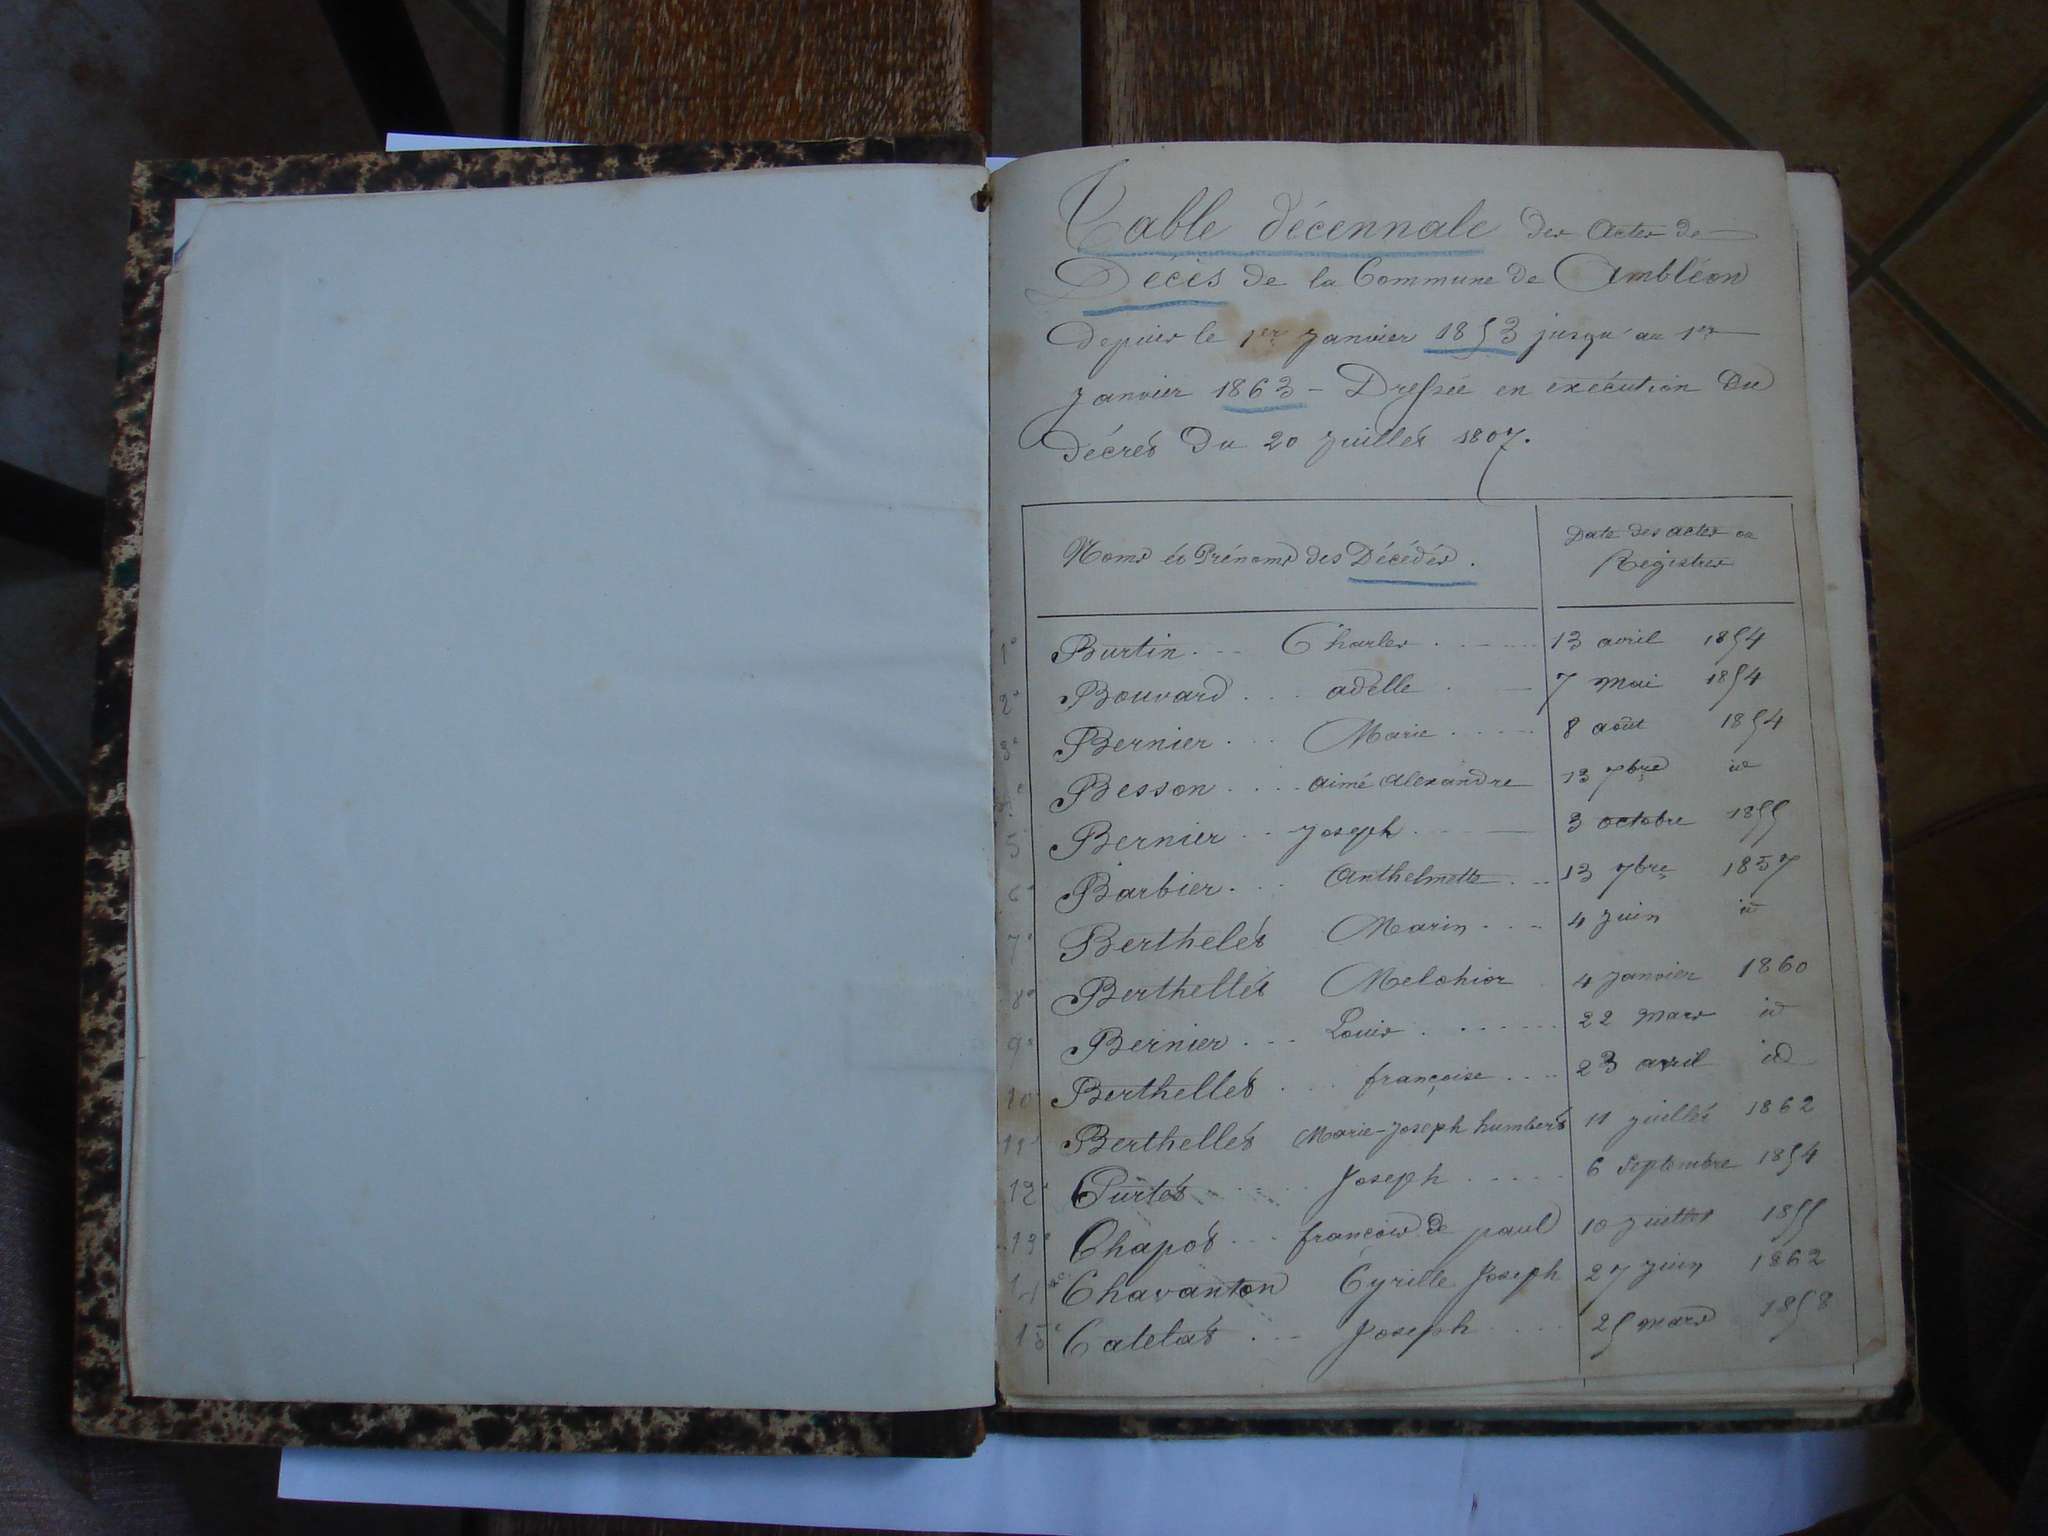 Table décennale des actes de
Décès de la Commune de Ambléon
depuis le 1er Janvier 1853 jusqu'au 1er
Janvier 1863 - Dressée en exécution du
décret du 20 Juillet 1807.
Noms et Prénoms des Décédés. Date des actes ou Registres
1° Burtin Charles 13 avril 1854
2° Bouvard adelle 7 Mai 1854
3° Bernier Marie 8 août 1854
Besson aimé alexandre 13 7bre id
5 Bernier Joseph 3 octobre 1855
6° Barbier Anthelmette 13 7bre 1857
7° Berthelet Marin 4 Juin id
8° Berthellet Melchior 4 Janvier 1860
9° Bernier Louis 22 Mars id
10° Berthellet françoise 23 avril id
11° Berthellet Marie-Joseph humbert 11 juillet 1862
12° Curtet Joseph 6 Septembre 1854
13° Chapot françois de paul 10 Juillet 1855
14 Chavanton Cyrille Joseph 27 Juin 1862
15° Catelat Joseph 25 mars 1858